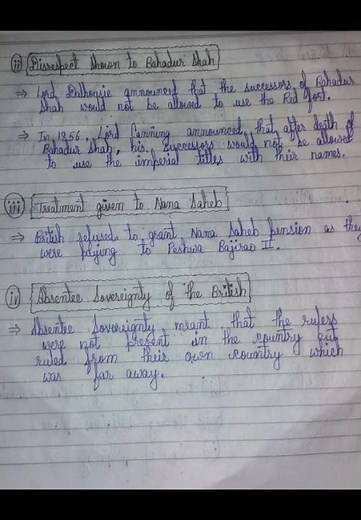 ii) Disrespect Shown to Bahadur Shah
⇒ Lord Dalhousie announced that the successors of Bahadur
Shah would not be allowed to use the Red fort.
⇒ In 1856, Lord Canning announced that after death of
Bahadur Shah, his successors would not be allowed
to use the imperial titles with their names.
iii) Treatment given to Nana Saheb
⇒ British refused to grant Nana Saheb pension as they
were paying to Peshwa Bajirao II.
iv) Absentee Sovereignty of the British
⇒ Absentee Sovereignty meant that the rulers
were not present in the country but
ruled from their own country which
was far away.